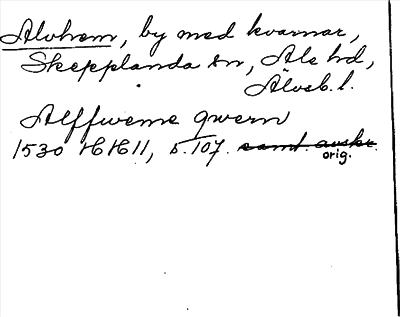 Alvhem, by med kvarnar,
Skepplanda sn, Ale hd,
Älvsb. l.
Alffweme qwern
1530 HH 11, s. 107. samt. avskr.
orig.